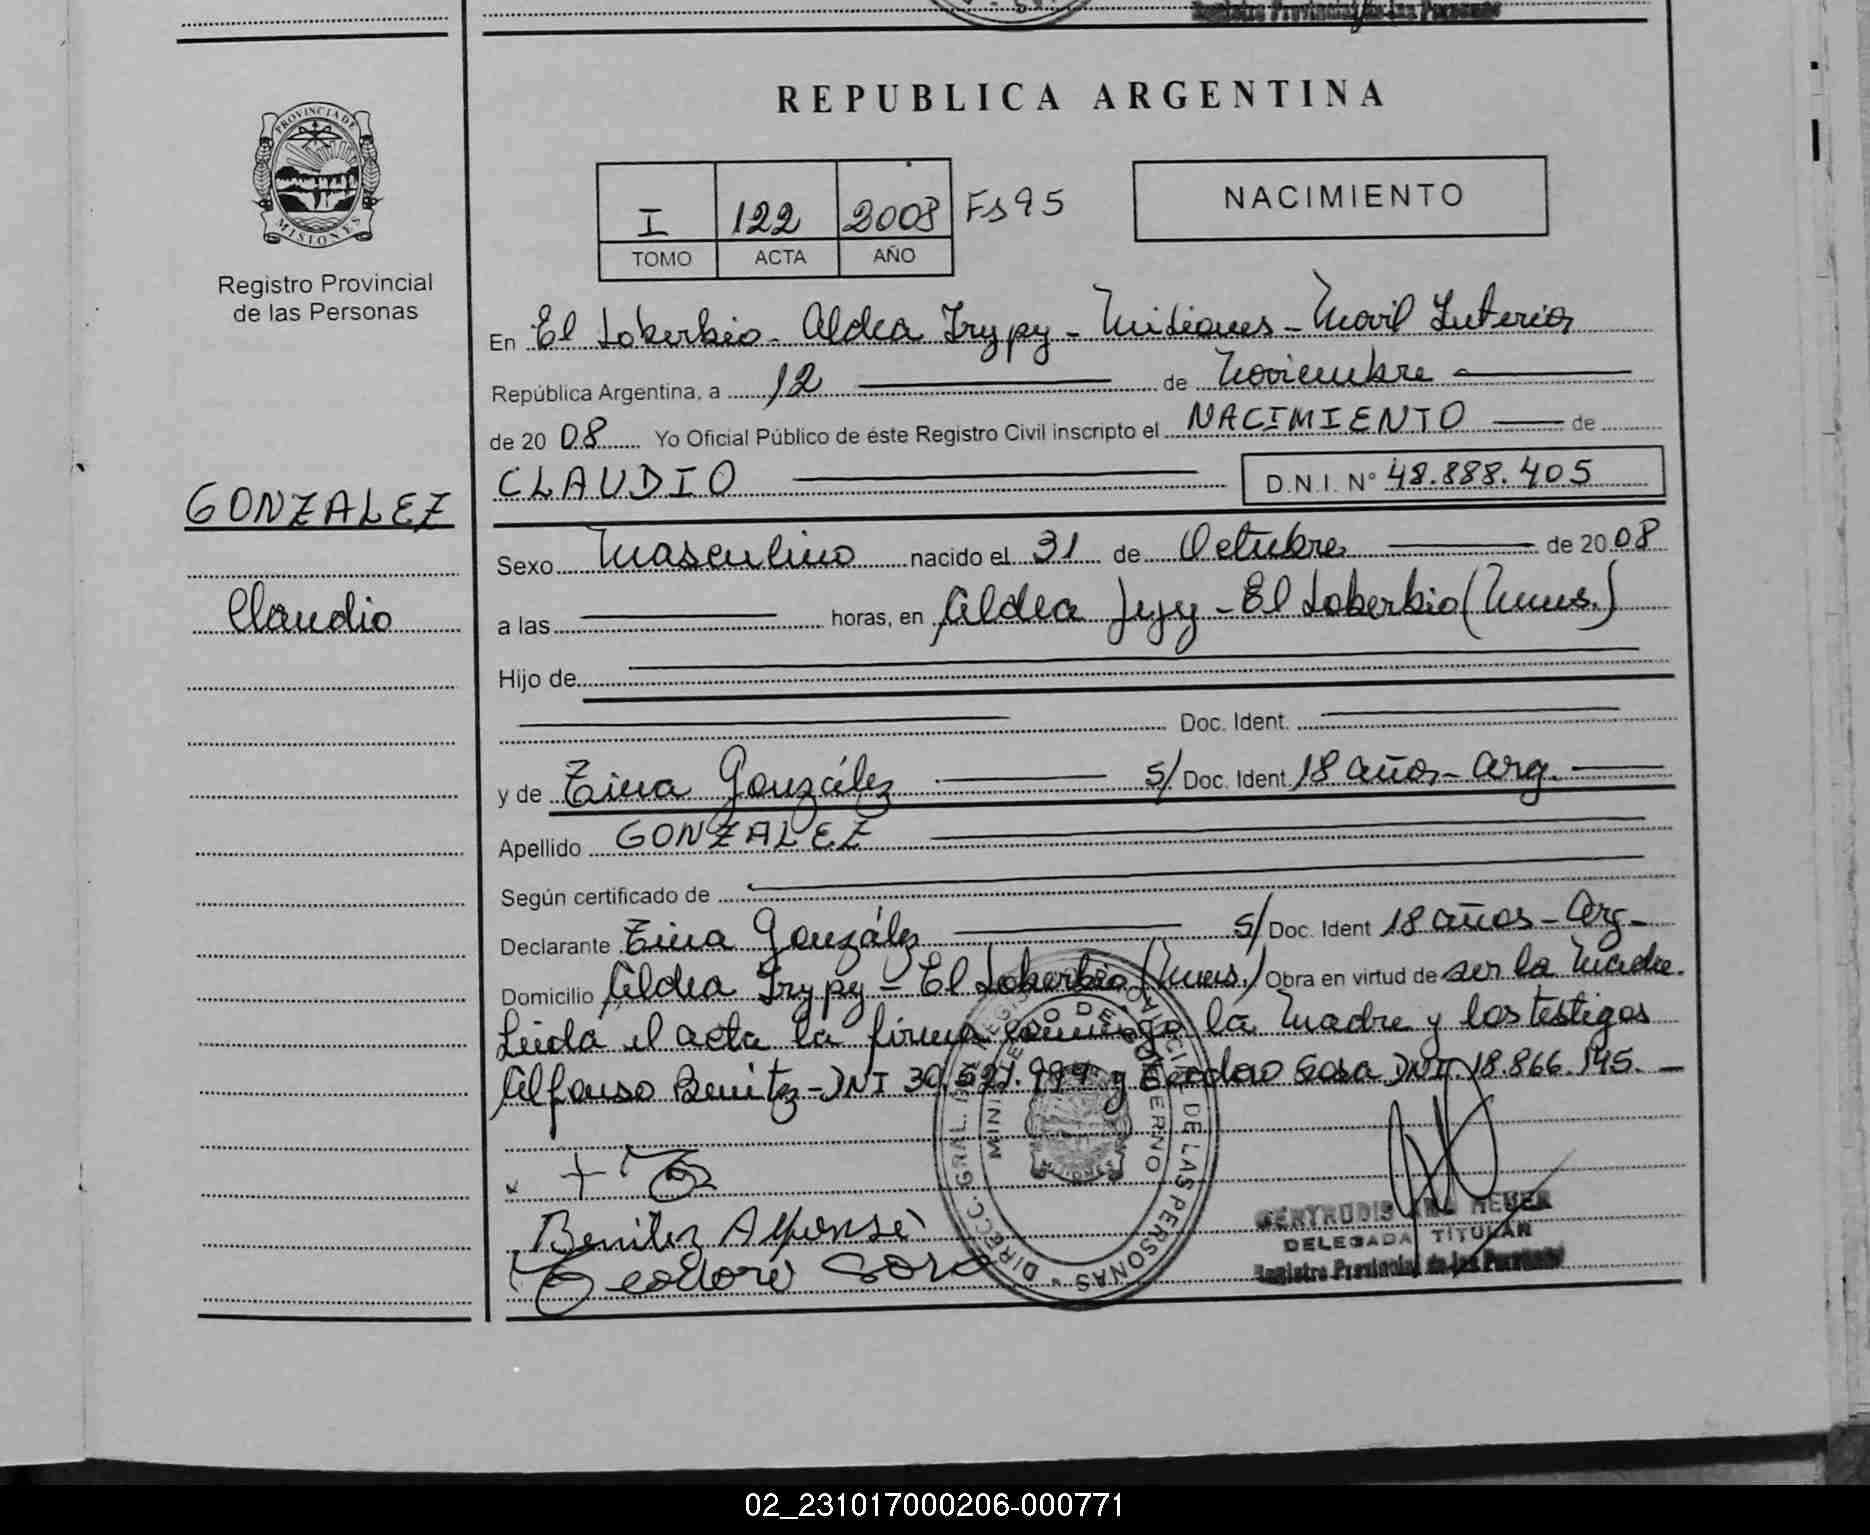 Registro Provincial de las Personas
REPUBLICA ARGENTINA
PROVINCIA DE
MISIONES
Registro Provincial
de las Personas
I 122 2008 Fs 95
TOMO ACTA AÑO
NACIMIENTO
En El Soberbio - Aldea Yrypy - Misiones - Movil Interior
República Argentina, a 12 de Noviembre
de 20 08 Yo Oficial Público de éste Registro Civil inscripto el NACIMIENTO de
CLAUDIO D.N.I. N° 48.888.405
GONZALEZ
Claudio
Sexo Masculino nacido el 31 de Octubre de 20 08
a las horas, en Aldea - El Soberbio (Mnes.)
Hijo de
Doc. Ident.
y de González S/ Doc. Ident 18 años - Arg.
Apellido GONZALEZ
Según certificado de
Declarante González S/ Doc. Ident 18 años - Arg -
Domicilio Aldea Yrypy - El Soberbio (Mnes.) Obra en virtud de ser la Madre.
Leida el acta la firma conmigo la Madre y los testigos
Alfonso Benitez - DNI 30.527.997 y Teodoro Sosa DNI 18.866.145. -
+
Benitez Alfonso
Teodoro Sosa
DIRECC. GRAL. DEL REGISTRO PROVINCIAL DE LAS PERSONAS
MINISTERIO DE GOBIERNO
MISIONES
GERTRUDIS ANA
DELEGADA TITULAR
Registro Provincial de las Personas
02_231017000206-000771